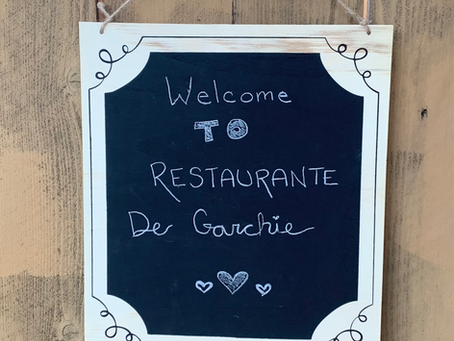 Welcome
TO
RESTAURANTE
De Garchie